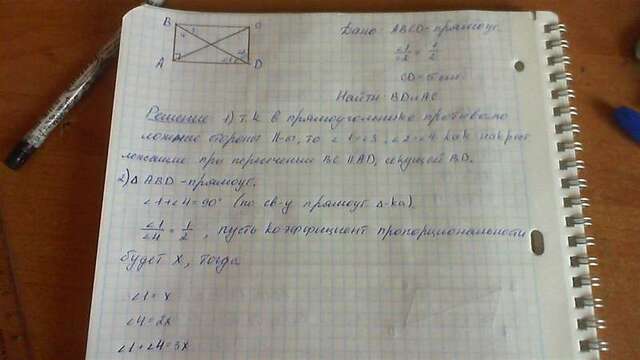 B C
A D
Дано: ABCD-прямоуг.
∠1/∠2 = 1/2
CD=5мм
Найти: BD и AC
Решение: 1) т.к в прямоугольнике противопо
ложные стороны ||-ы, то ∠1=∠3, ∠2=∠4 как накрест
лежащие при пересечении BC || AD, секущей BD.
2) Δ ABD - прямоуг.
∠1+∠4=90° (по св-у прямоуг. Δ-ка)
∠1/∠4 = 1/2, пусть коэффициент пропорциональности
будет x, тогда
∠1=x
∠4=2x
∠1+∠4=3x